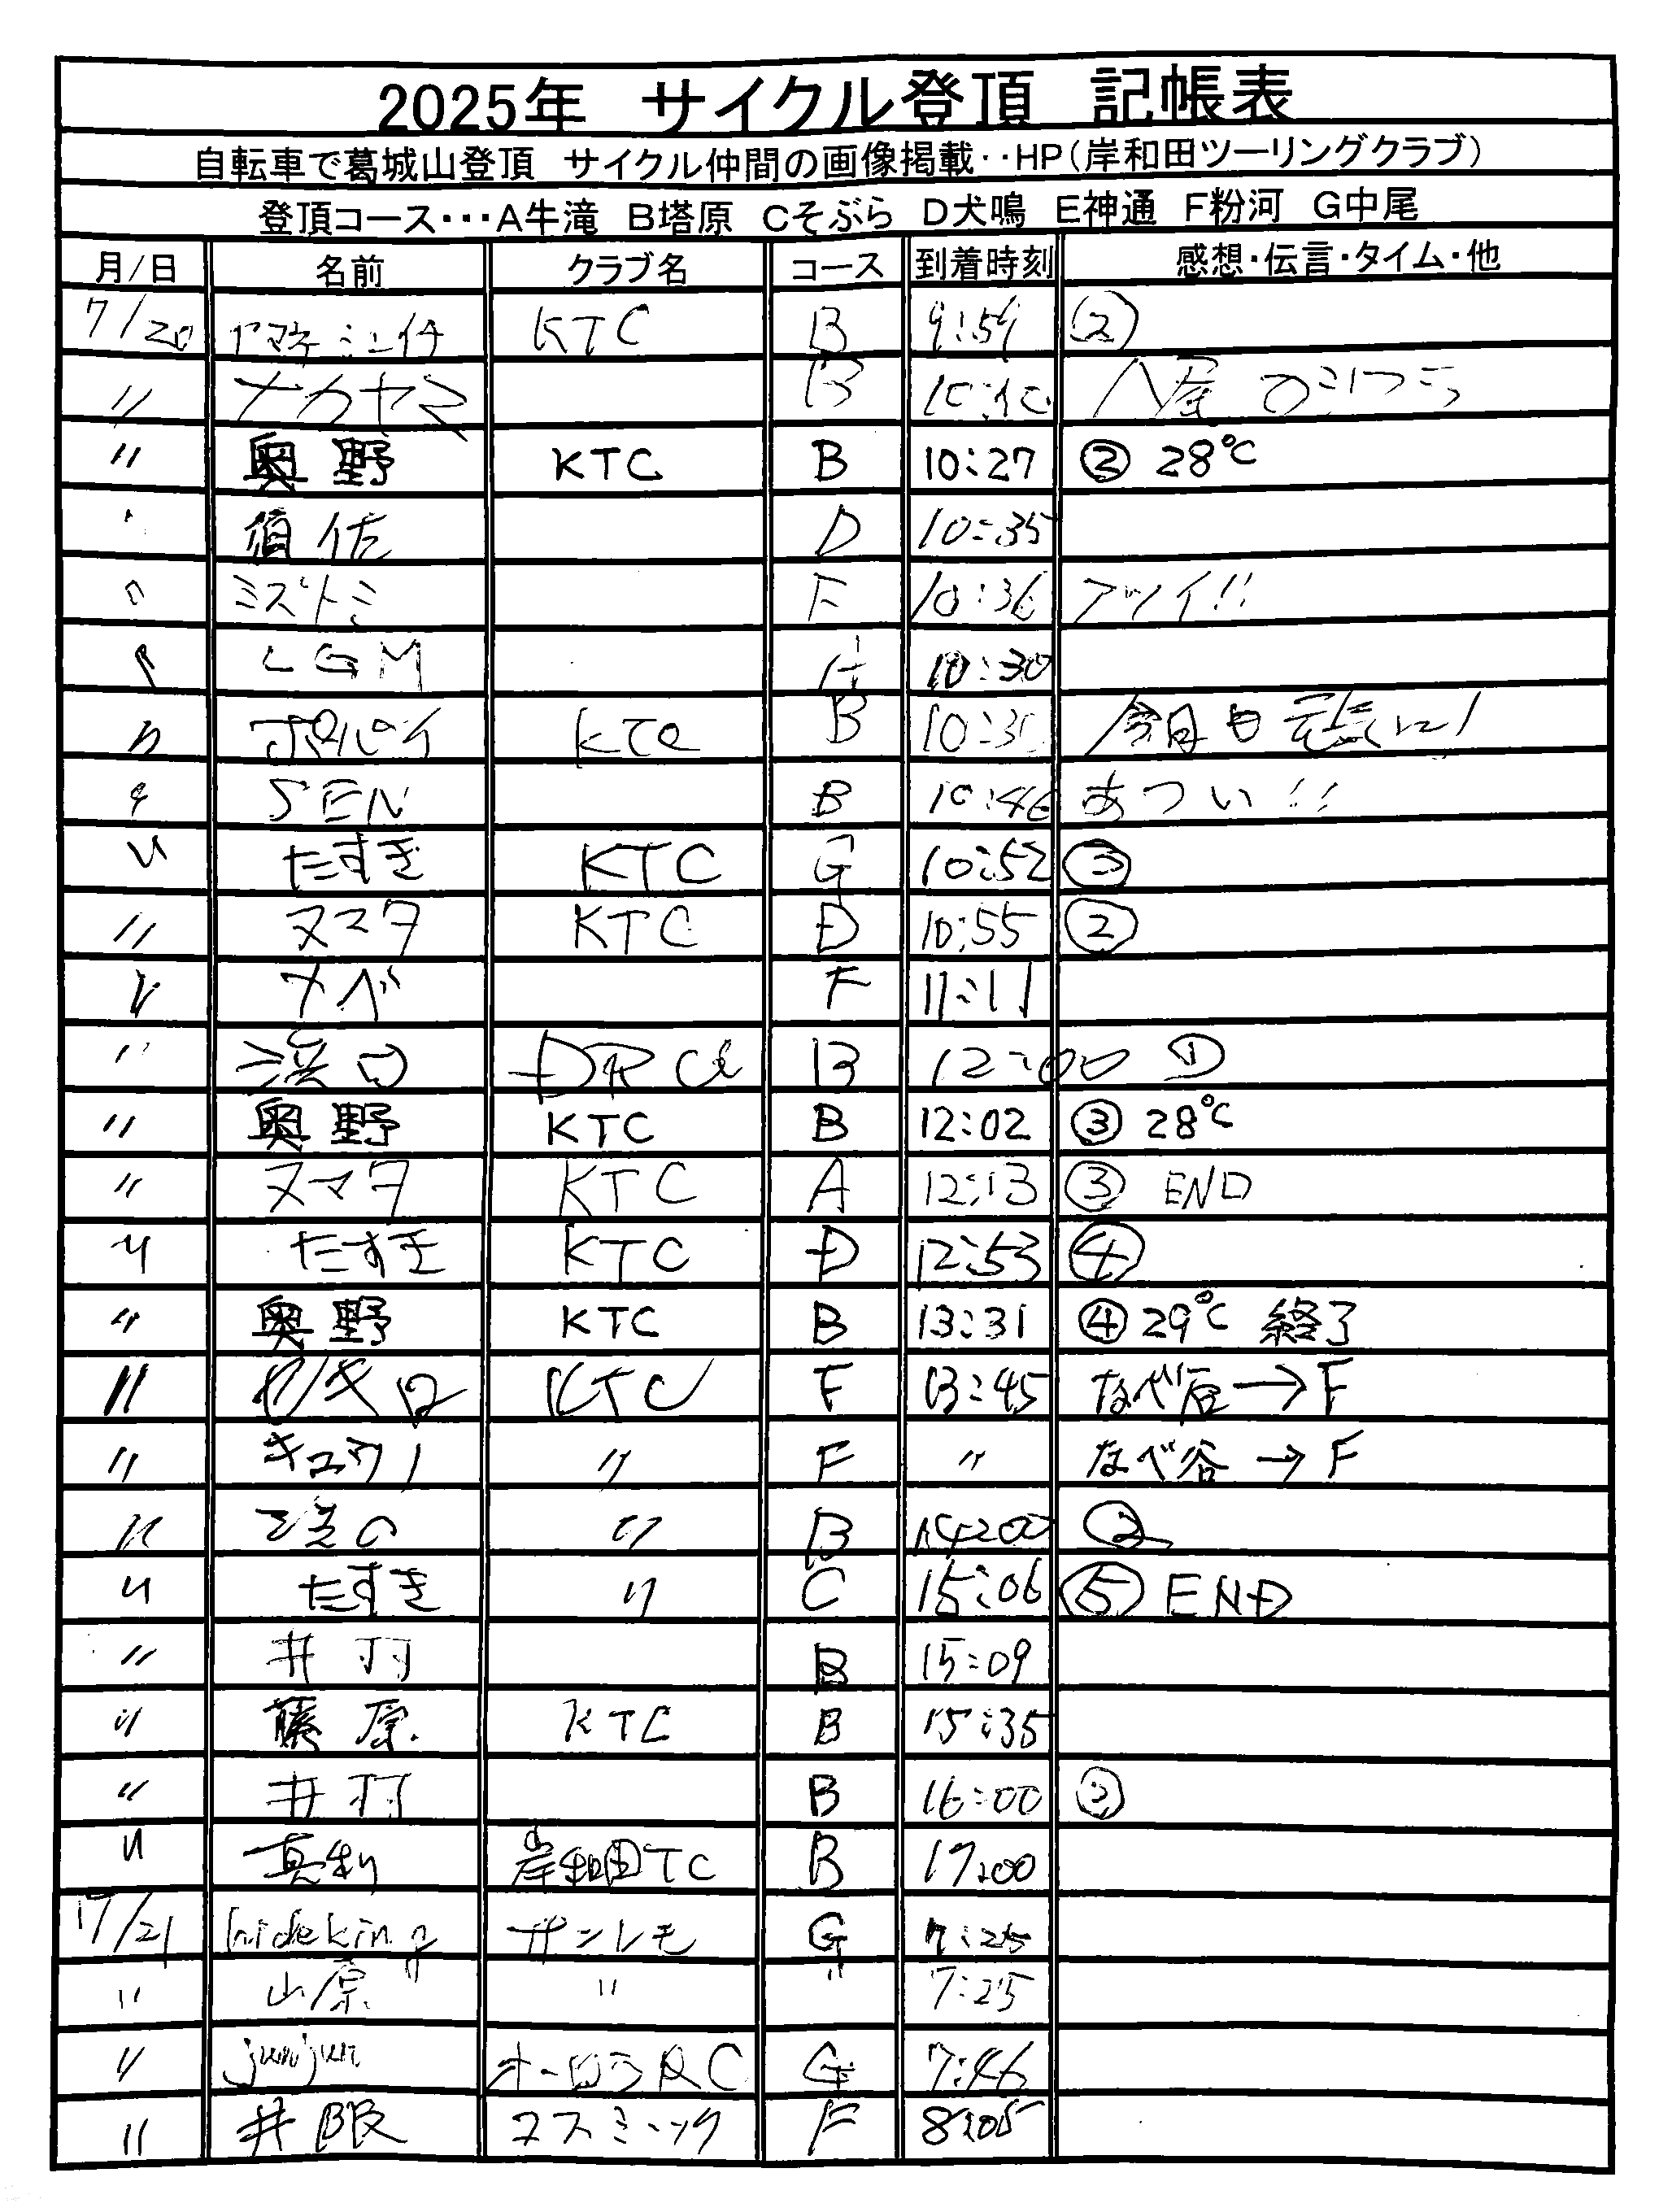 2025年 サイクル登頂 記帳表
自転車で葛城山登頂 サイクル仲間の画像掲載‥HP(岸和田ツーリングクラブ)
登頂コース・・・A牛滝 B塔原 Cそぶら D犬鳴 E神通 F粉河 G中尾
月/日 名前 クラブ名 コース 到着時刻 感想・伝言・タイム・他
7/20 KTC B 9:59 ②
〃 ナカヤマ B 10:10
〃 奥野 KTC B 10:27 ② 28℃
須佐 D 10:35
ミズトミ F 10:36 アツイ!!
LGM 10:30
〃 ポパイ KTC B 今日も元気に!
SEN B 10:46 あつい!!
〃 たすき KTC G 10:52 ③
〃 ヌマタ KTC D 10:55 ②
〃 ナベ F 11:11
〃 浜口 B 12:00 ①
〃 奥野 KTC B 12:02 ③ 28℃
〃 ヌマタ KTC A 12:13 ③ END
〃 たすき KTC D 12:53 ④
〃 奥野 KTC B 13:31 ④ 29℃ 終了
〃 KTC F 13:45 なべ谷→F
〃 F 〃 なべ谷→F
〃 〃 B 14:00 ②
〃 たすき 〃 C 15:06 ⑤ END
〃 井羽 B 15:09
〃 藤原 KTC B 15:35
〃 井羽 B 16:00 ②
〃 岸和田TC B 17:00
7/21 hideking サンレモ G 7:25
〃 山原 〃 〃 7:25
〃 junjun オーロラRC G 7:46
〃 井阪 コスミック F 8:05